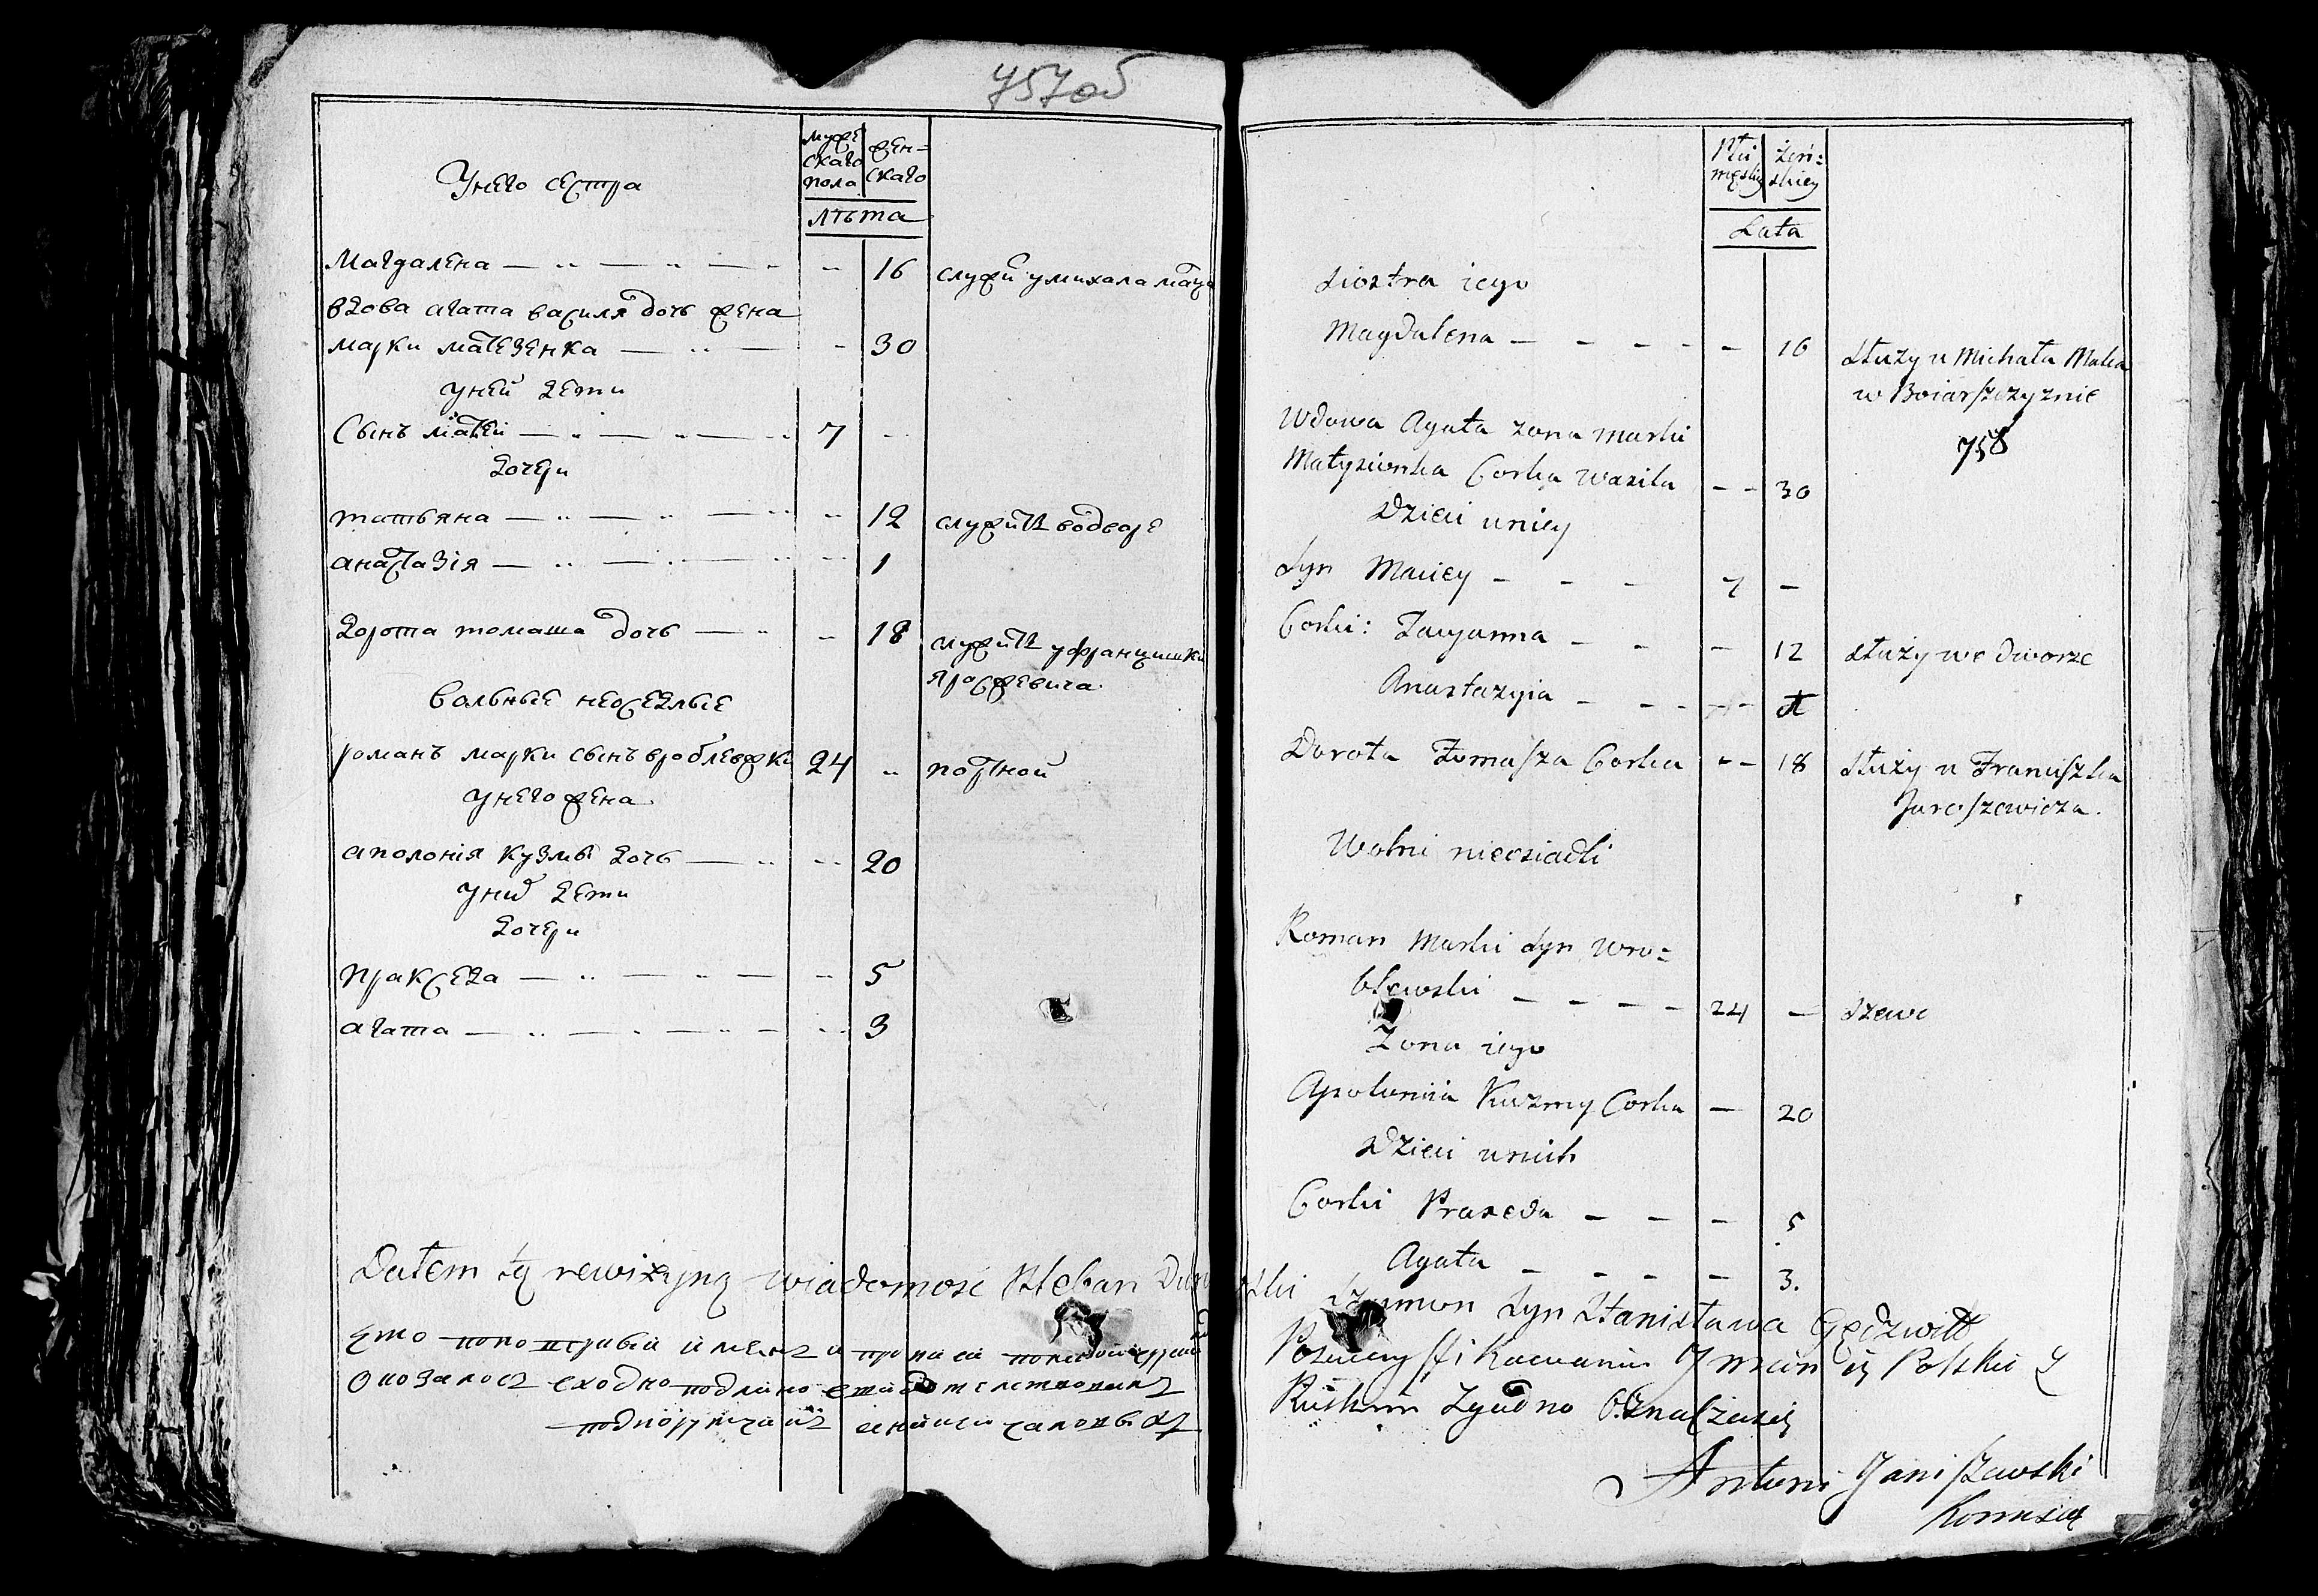 757об
муже ского пола
жен-скаго
лѣта
Унего сестра
Магдалена — 16 служи у михала маца
вдова агата василя дочь жена
марки матезенка — 30
уней дети
Сынъ матей — 7
дочери
татьяна — 12 служитъ водворе
анастазiя — 1
дорота томаша дочь — 18 служитъ у францишка
ярошевича
вольные неоседлые
романъ марки сынъ вроблевски 24 портной
унего жена
аполонiя кузмы дочь — 20
уних дети
дочери
пракседа — 5
агата — 3
Dałem tę rewizyjną wiadomosc Stefan
Ето
Оказалось сходно
Płci męskiey
żeń: skiey
Lata
Siostra iego
Magdalena — 16 Służy u Michała Maka
w Boiarszczyznie
758
Wdowa Agata zona Marki
Matysionka Corka Wasila — 30
Dzieci uniey
Syn Maciey — 7 —
Corki: Tacyanna — 12 służy we dworze
Anastazyia — 1
Dorota Tomasza Corka — 18 Służy u Franciszka
Jaroszewicza.
Wolni nieosiadli
Roman Marki Syn Wro=
blewski — 24 — Szewc
Zona iego
Apolonia Kuzmy Corka — 20
Dzieci unich
Corki Praxeda — 5
Agata — 3.
Szymon Syn Stanisława Giedzwiłł
Polsku y
Rusku Zgodno
Antoni Janiszewski